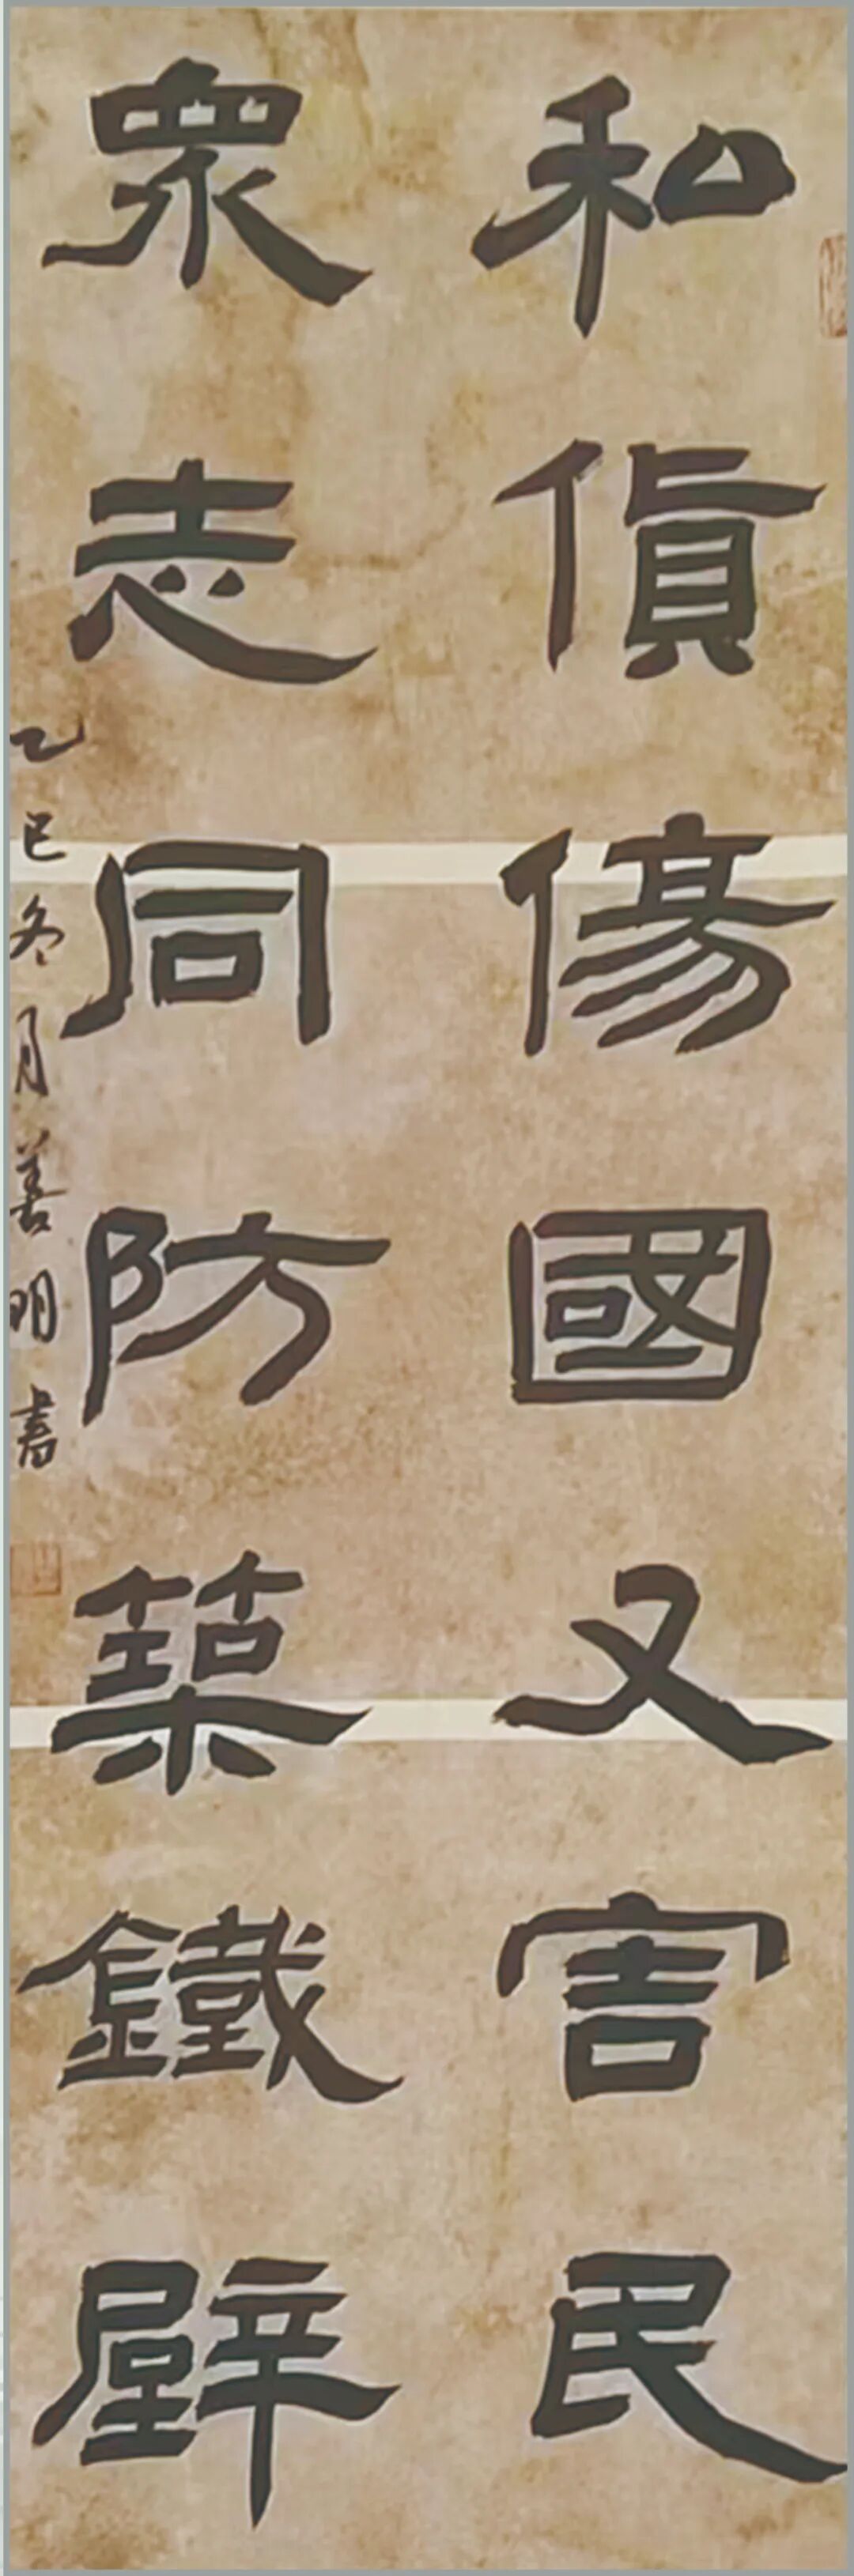 私貨傷國又害民
眾志同防築鐵壁
乙巳冬月善明書